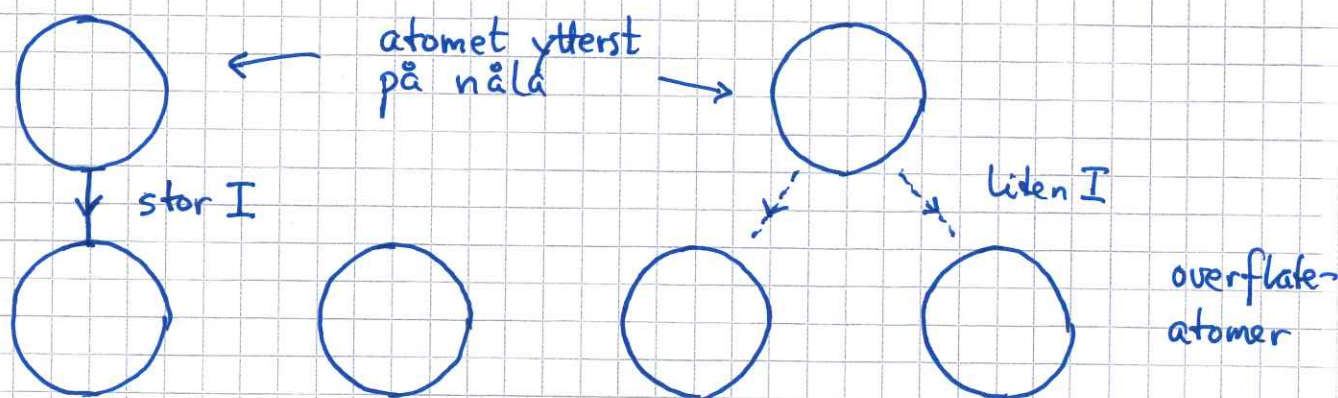 atomet ytterst
på nåla
stor I
liten I
overflate-
atomer